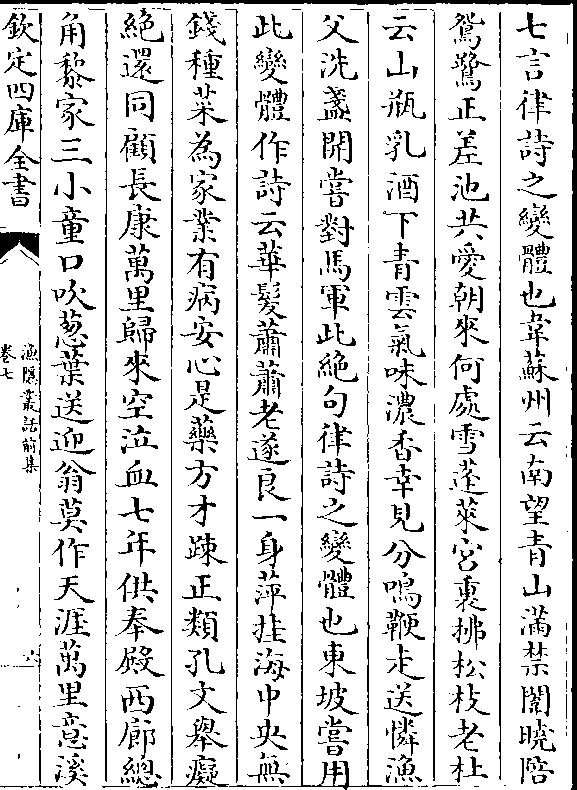 七言律詩之變體也韋蘇州云南望青山滿禁闈曉陪
鴛鷺正差池共愛朝來何處雪蓬萊宮裏拂松枝老杜
云山瓶乳酒下青雲氣味濃香幸見分鳴鞭走送憐漁
父洗盞開嘗對馬軍此絕句律詩之變體也東坡嘗用
此變體作詩云華髮蕭蕭老遂良一身萍挂海中央無
錢種菜為家業有病安心是藥方才疎正類孔文舉癡
絕還同顧長康萬里歸來空泣血七年供奉殿西廊總
角黎家三小童口吹葱葉送迎翁莫作天涯萬里意溪
欽定四庫全書
漁隱叢話前集
卷七